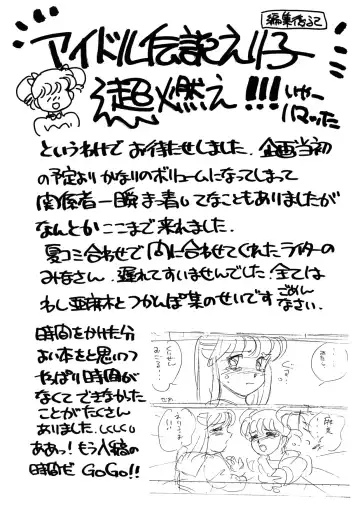 編集後記
アイドル伝説えり子
超燃え!!!いやー
ハマッた
というわけでお待たせしました。企画当初
の予定よりかなりのボリュームになってしまって
関係者一瞬まっ青いてなこともありましたが
なんとかここまで来れました。
夏コミ合わせで間に合わせてくれたライターの
みなさん、遅れてすいませんでした!全ては
わし亜麻木とつかんぽ集のせいです
ごめん
なさい。
時間をかけた分
よい本をと思いつつ
やっぱり時間が
なくてできなかった
ことがたくさん
ありました。
ああっ!もう入稿の
時間だ GoGo!!